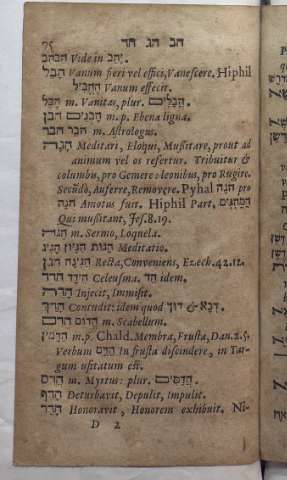 75 הב הג הד
הבהב Vide in יָהַב.
הָבַל Vanum fieri vel effici, Vanescere. Hiphil
הֶהְבִּיל Vanum effecit.
הבל m. Vanitas, plur. הֲבָלִים.
הבן הָבְנִים m. p. Ebena ligna.
הבר הבר m. Astrologus.
הָגָה Meditari, Eloqui, Mussitare, prout ad
animum vel os refertur. Tribuitur &
columbæ, pro Gemere & leonibus, pro Rugire.
Secūdò, Auferre, Removere. Pyhal הגה pro
הגה Amotus fuit. Hiphil Part. הַמַּהְגִּים
Qui mussitant, Jes. 8. 19.
m. Sermo, Loquela.
הגיג הגיון הגות Meditatio.
הגן הגינה Recta, Conveniens, Ezeck. 42. 12.
הדד הידד Celeusma. הד idem.
Injecit, Immisit.
הָדַךְ Contudit: idem quod דוך & דכא.
הדם הדום m. Scabellum.
m. p. Chald. Membra, Frusta, Dan. 2. 5.
Verbum הדם In frusta discindere, in Tar-
gum usitatum est.
הדס m. Myrtus: plur. הֲדַסִּים.
הָדַף Deturbavit, Depulit, Impulit.
הָדַר Honoravit, Honorem exhibuit. Ni-
D 2